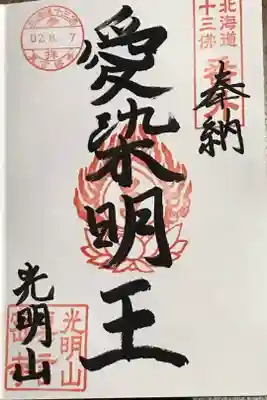 北海道
十三佛
奉納
愛染明王
光明山
光明山
02.8.7